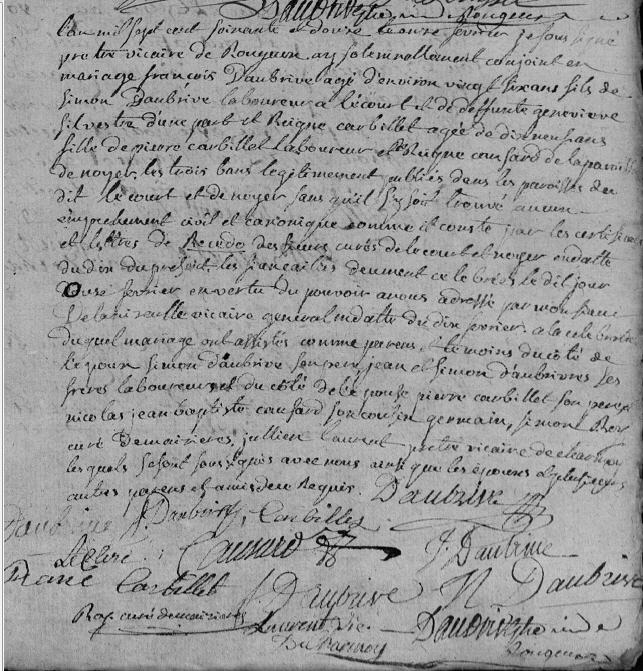 L'an mil sept cent soixante et douze le onze fevrier je sous signé
pretre vicaire de Rougeux ay solemnellement conjoint en
mariage françois Daubrive agé d'environ vingt six ans fils de
Simon Daubrive laboureur a lécourt et de deffunte genevieve
Silvestre d'une part et Reigne carbillet agée de dix neuf ans
fille de pierre carbillet Laboureur et Reigne causard de la paroisse
de noyer, les trois bans legitimement publiés dans les paroisses du
dit lécourt et de noyer sans qu'il s'y soit trouvé aucun
empechement civil et canonique comme il conste par les certificats
et lettres de Recedo des sieurs curés de lecourt et noyer en datte
du dix du present, les fiançailles deument celebrées le dit jour
onze fevrier en vertu du pouvoir a nous adressé par monsieur
vicaire general en datte du dix fevrier. a la celebration
duquel mariage ont assistés comme parens et temoins du côté de
l'epoux Simon d'aubrive son pere, jean et Simon d'aubrives ses
freres laboureurs et du côté de l'epouse pierre carbillet son pere
nicolas jean baptiste causard son cousin germain, Simon
curé de maizieres, jullien laurent pretre vicaire de
lesquels se sont sous signés avec nous ainsi que les epoux et plusieurs
autres parens et amis de ce Requis. Daubrive
Daubrive J. Daubrive Carbillet
Caussard J. Daubrive
Carbillet Daubrive N Daubrive
curé de maizieres Laurent Vic. Daubrive
Rougeux